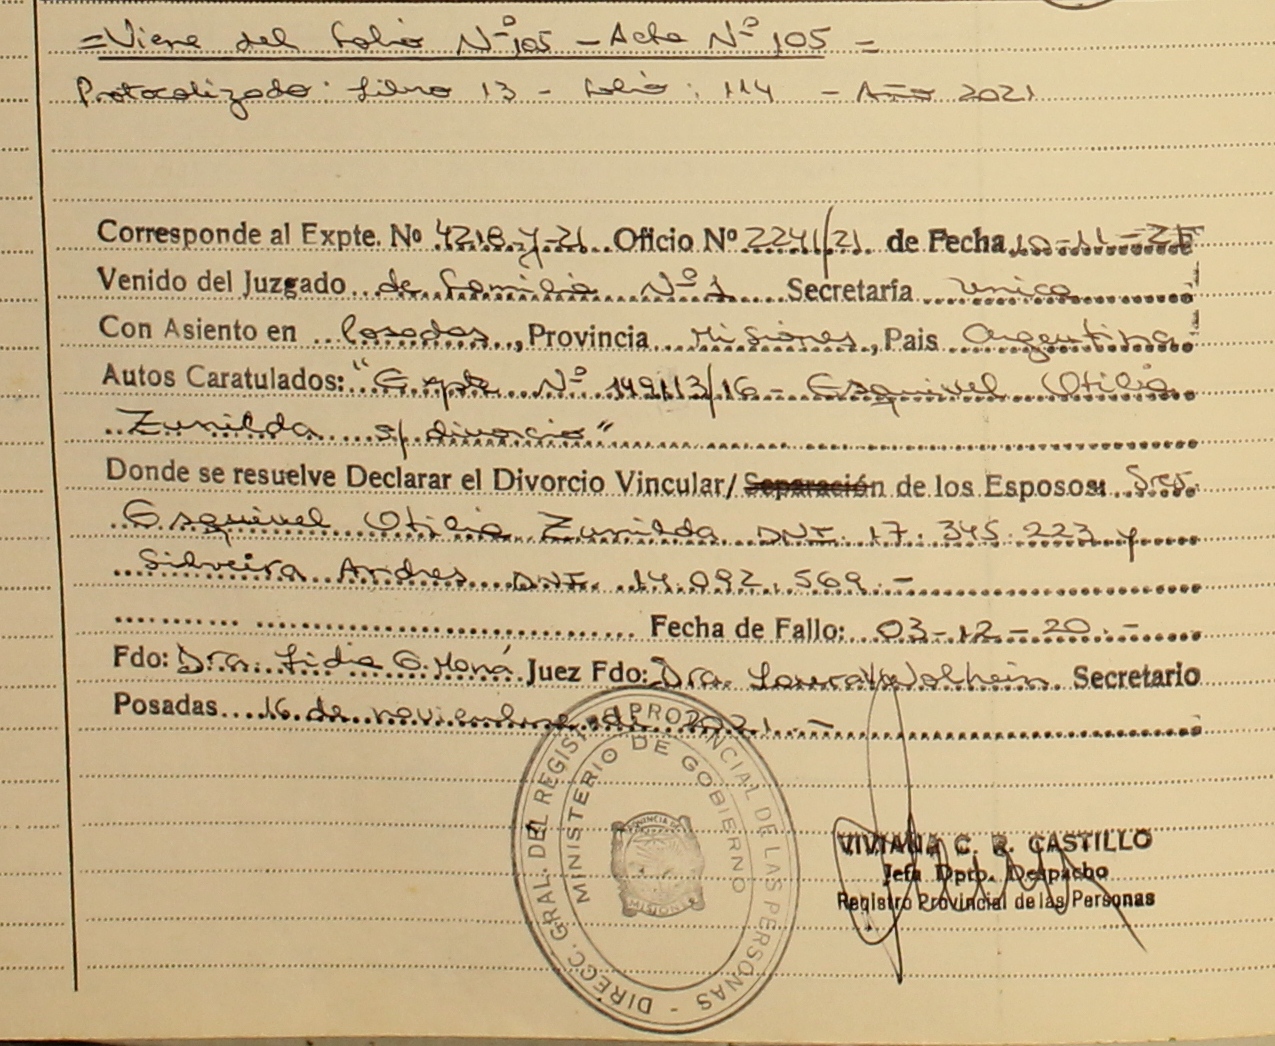 =Viene del Folio Nº 105 - Acta Nº 105 =
Protocolizado: Libro 13 - Folio: 114 - Año 2021
Corresponde al Expte. Nº 4218-Y-21 Oficio Nº 2241/21 de Fecha 10-11-21
Venido del Juzgado de Familia Nº 1 Secretaría Unica
Con Asiento en Posadas, Provincia Misiones, Pais Argentina
Autos Caratulados: "Expte Nº 149113/16 - Esquivel Otilia
Zunilda s/ divorcio"
Donde se resuelve Declarar el Divorcio Vincular/ Separación de los Esposos: Sres.
Esquivel Otilia Zunilda DNI. 17.345.223 y
Silveira Andres DNI. 14.092.569.-
Fecha de Fallo: 03-12-20.-
Fdo: Dra. Lidia G. Juez Fdo: Dra. Laura Secretario
Posadas 16 de noviembre de 2021.-
DIRECC. GRAL. DEL REGISTRO PROVINCIAL DE LAS PERSONAS -
MINISTERIO DE GOBIERNO
PROVINCIA DE
MISIONES
VIVIANA C. R. CASTILLO
Jefa Dpto. Despacho
Registro Provincial de las Personas